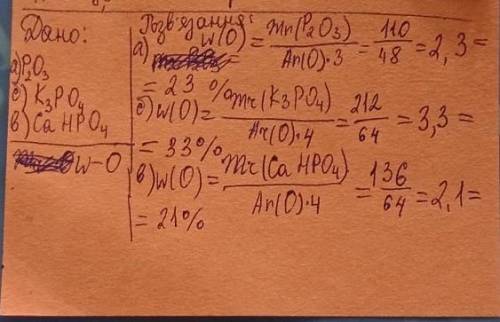 Дано:
а)P₂O₃
б) K₃PO₄
в) CaHPO₄
w-O
Розв'язання:
а) w(O) = Mr(P₂O₃) / Ar(O)·3 = 110 / 48 = 2,3 =
= 23 %
б) w(O) = Mr(K₃PO₄) / Ar(O)·4 = 212 / 64 = 3,3 =
= 33%
в) w(O) = Mr(CaHPO₄) / Ar(O)·4 = 136 / 64 = 2,1 =
= 21%